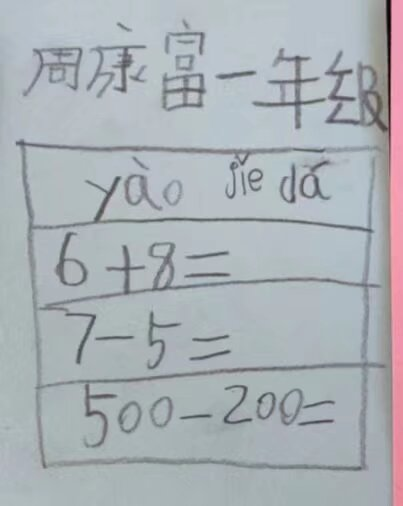 周康富一年级
yào jǐe dá
6+8=
7-5=
500-200=